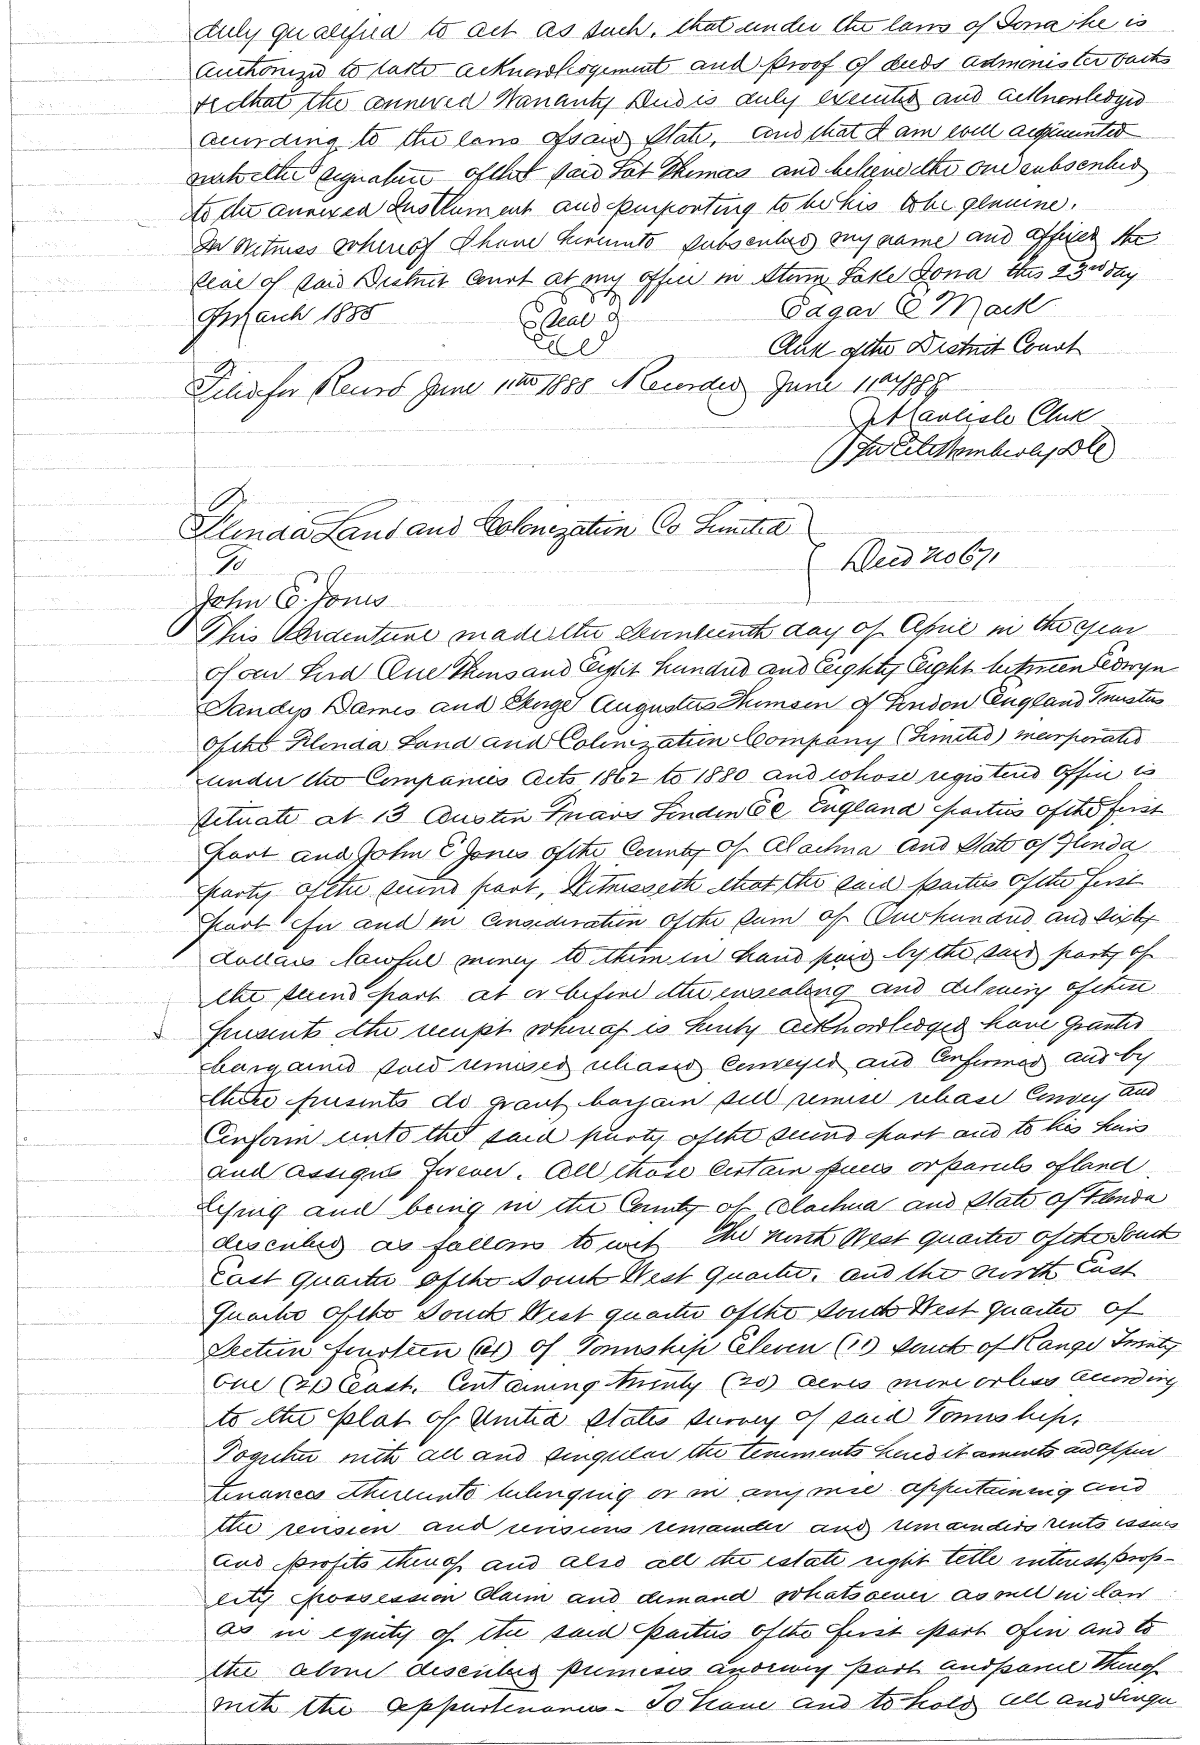 duly qualified to act as such, that under the laws of Iowa he is
authorized to take acknowledgement and proof of deeds administer oaths
&c that the annexed Warranty Deed is duly executed and acknowledged
according to the laws of said State, and that I am well acquainted
with the signature of the said Thomas and believe the one subscribed
to the annexed Instrument and purporting to be his to be genuine.
In Witness whereof I have hereunto subscribed my name and affixed the
seal of said District Court at my office in Storm Lake Iowa this 23rd day
of March 1888
Seal
Edgar E Mack
Clerk of the District Court
Filed for Record June 11th 1888 Recorded June 11th 1888
Clerk
Florida Land and Colonization Co Limited
To
Deed No 671
John E. Jones
This Indenture made the Seventeenth day of April in the year
of our Lord One Thousand Eight hundred and Eighty Eight between Edwyn
Sandys Dawes and George Augustus Thomson of London England Trustees
of the Florida Land and Colonization Company (Limited) incorporated
under the Companies Acts 1862 to 1880 and whose registered office is
situate at 13 Austin Friars London E C England parties of the first
part and John E Jones of the County of Alachua and State of Florida
party of the second part, Witnesseth that the said parties of the first
part for and in consideration of the sum of One hundred and sixty
dollars lawful money to them in hand paid by the said party of
the second part at or before the ensealing and delivery of these
presents the receipt whereof is hereby acknowledged have granted
bargained sold remised released conveyed and confirmed and by
these presents do grant bargain sell remise release convey and
confirm unto the said party of the second part and to his heirs
and assigns forever. All those certain pieces or parcels of land
lying and being in the County of Alachua and State of Florida
described as follows to wit The North West quarter of the South
East quarter of the South West quarter, and the North East
quarter of the South West quarter of the South West quarter of
Section fourteen (14) of Township Eleven (11) South of Range Twenty
one (21) East. Containing twenty (20) acres more or less according
to the plat of United States survey of said Township.
Together with all and singular the tenements hereditaments and appur
tenances thereunto belonging or in any wise appertaining and
the revision and revisions remainder and remainders rents issues
and profits thereof and also all the estate right title interest, prop-
erty possession claim and demand whatsoever as well in law
as in equity of the said parties of the first part of in and to
the above described premises and every part and parcel thereof
with the appurtenances - To have and to hold all and singu